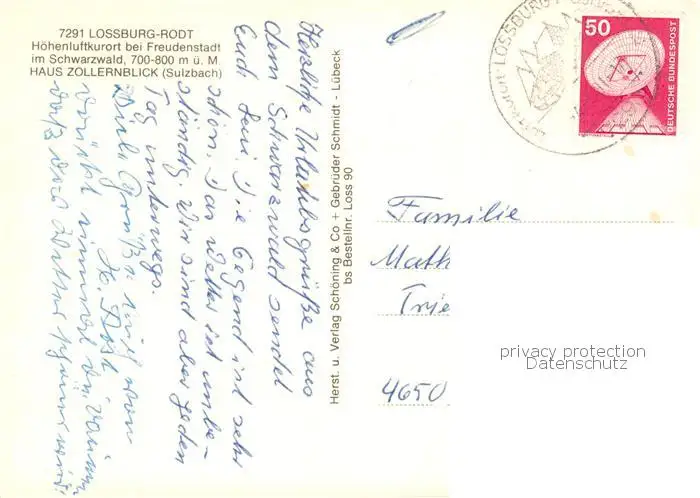 7291 LOSSBURG-RODT
Höhenluftkurort bei Freudenstadt
im Schwarzwald, 700-800 m ü. M.
HAUS ZOLLERNBLICK (Sulzbach)
Herzliche Urlaubsgrüße aus
dem Schwarzwald sendet
Euch Die Gegend ist sehr
schön. Das Wetter ist unbe-
ständig. Wir sind aber jeden
Tag unterwegs.
Viele Grüße auch von
H.
daß das Wetter schöner wird!
Herst. u. Verlag Schöning & Co + Gebrüder Schmidt - Lübeck
bs Bestellnr. Loss 90
LOSSBURG
50
DEUTSCHE BUNDESPOST
Familie
Math
Trie
4650
privacy protection
Datenschutz